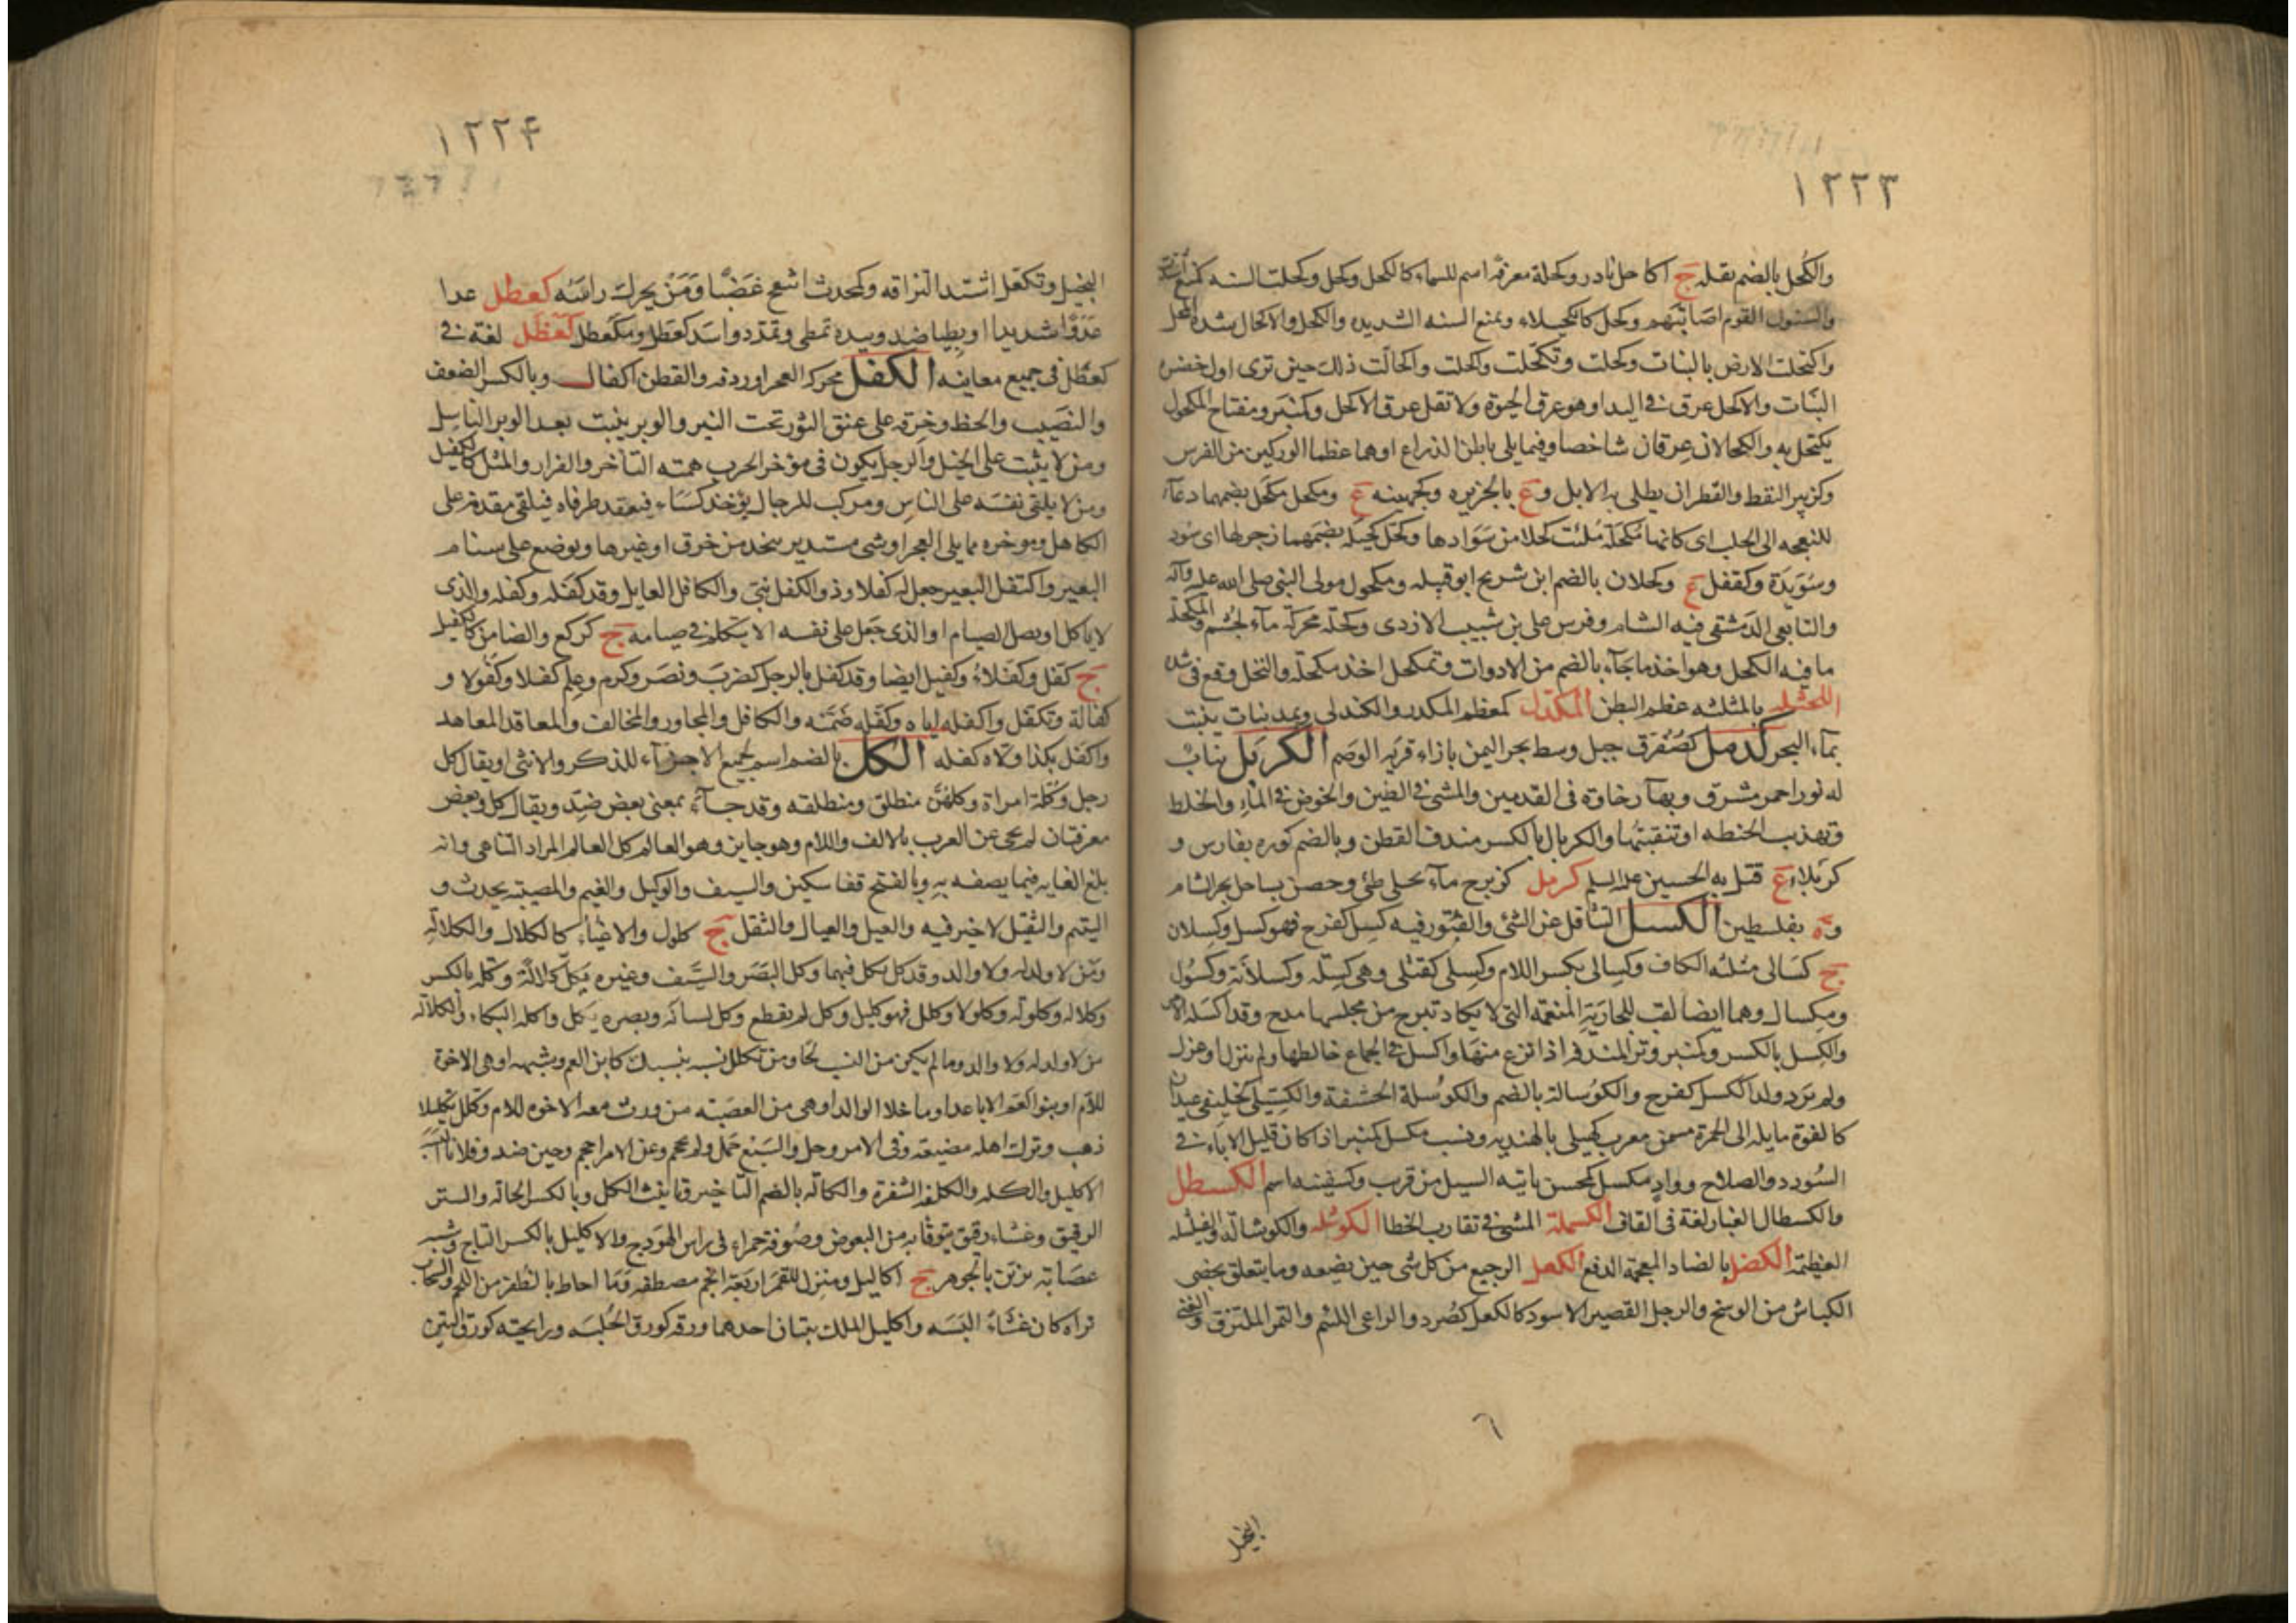 ١٢٢٣
والكُحل بالضم بقله ج اكاحل نادر وكحلة معرفة اسم للسماء كالكحل وكحل وكحلت السنه كمنع اشتدت
والسنون القوم اصابتهم وكحل كالكحيلاء وبمنع السنه الشديده والكحل والاكحال شدة المحل
واكتحلت الارض بالنبات وكحلت وتكحّلت واكحلت واكحالّت ذلك حين ترى اول خضرة
النبات والاكحل عرق في اليد او هو عرق الحيوة ولا تقل عرق الاكحل وكمنبر ومفتاح المكحول
يكتحل به والمكحالان عرقان شاخصا وفيما يلى باطن الذراع او هما عظما الوركين من الفرس
وكزبير النفط والقطران يطلى به الابل وع بالجزيره وكجهينه ع ومكحل مكحل بضمهما دعاء
للنعجه الى الحلب اى كانها مكحلة ملئت كحلا من سوادها وكحل كحيله بضمهما زجر لها اى سود
وسويدة وكقفل ع وكحلان بالضم ابن شريح ابو قبيله ومكحول مولى النبى صلى الله عليه وآله
والتابعى الدمشقى فيه الشام وفرس على بن شبيب الازدى وكحله محركة ماء لجشم والمكحلة
ما فيه الكحل وهو احد ما جاء بالضم من الادوات وتمكحل اخذ مكحلة والكحل وقع فى شدة
الكحثله بالمثلثه عظم البطن المكندل كمعظم المكدر والكندلى ويمد نبات ينبت
بماء البحر كدمل كصُنْفرق جبل وسط بحر اليمن بازاء قرية الوصم الكربل نبات
له نور احمر مشرق وبهاء رخاوة فى القدمين والمشى فى الطين والخوض فى الماء والخلط
وتهذيب الحنطه او تنقيتها والكربال بالكسر مندف القطن وبالضم كوره بفارس و
كربلاء ع قتل به الحسين عليه السلم كرمل كزبرج ماء بجبلى طئ وحصن بساحل بحر الشام
وة بفلسطين الكسل التثاقل عن الشئ والفتور فيه كسل كفرح فهو كسل وكسلان
ج كسالى مثلثه الكاف وكسالى بكسر اللام وكسلى كقتلى وهى كسله وكسلانة وكسول
ومكسال وهما ايضا لقب للجارية المنعمه التى لا يكاد تبرح من مجلسها مدح وقد اكسله الامر
والكسل بالكسر وكمنبر وتر المندفه اذا نزع منها واكسل فى الجماع خالطها ولم ينزل او عزل
ولم يرد ولدا ككسل كفرح والكوسالة بالضم والكوسلة الحشفة والكسيلى كخليفى عيدان
كالفوة مايله الى الحمرة مسمن معرب كهيلى بالهنديه ونسب مكسل كمنبر اذا كان قليل الاباء فى
السودد والصلاح وواد مكسل كمحسن ياتيه السيل من قرب وكسفينه اسم الكسطل
والكسطال الغبار لغة فى القاف الكسملة المشى فى تقارب الخطا الكوشله والكوشالة الفيشله
العظيمة الكضل بالضاد المعجمه الدفع الكعل الرجيع من كل شى حين يضعه وما يتعلق بخصى
الكباش من الوسخ والرجل القصير الاسود كالكعل كصُرد والراعى اللئيم والتمر الملتزق والغنى
٦
البخيل
١٢٢۴
البخيل وتكعّل اشتد التزاقه وكمحدث اشيح غضبا ومن يحرك راسه كعطل عدا
عدوا شديدا او بطيا ضد وبيده تمطى وتمدد واسد كعطل ومكعطل كعظل لغة فى
كعطل فى جميع معانيه الكفل محركه العجر او ردفه والقطن اكفال وبالكسر الضعف
والنصيب والحظ وخرقه على عنق الثور تحت النير والوبر ينبت بعد الوبر الناسل
ومن لا يثبت على الخيل والرجل يكون فى مؤخر الحرب همته التاخر والفرار والمثل كالكفيل
ومن لا يلقى نفسه على الناس ومركب للرجال يؤخذ كساء فيعقد طرفاه فيلقى مقدمه على
الكاهل ومؤخره مما يلى العجز او شى مستدير يتخذ من خرق او غيرها ويوضع على سنام
البعير واكتفل البعير جعل له كفلا وذو الكفل نبى والكافل العايل وقد كفله وكفله والذى
لا ياكل او يصل الصيام او الذى جعل على نفسه الا يتكلم فى صيامه ج كركع والضامن كالكفيل
ج كفل وكفلاء وكفيل ايضا وقد كفل بالرجل كضرب ونصر وكرم وعلم كفلا وكفولا و
كفالة وتكفل واكفله اياه وكفله ضمنه والكافل والمجاور والمخالف والمعاقد المعاهد
واكفل بكذا ولاه كفله الكل بالضم اسم لجميع الاجزاء للذكر والانثى او يقال كل
رجل وكلة امراة وكلهن منطلق ومنطلقه وقد جاء بمعنى بعض ضد ويقال كل وبعض
معرفتان لم يجى عن العرب بالالف واللام وهو جايز وهو العالم كل العالم المراد التناهى وانه
بلغ الغايه فيما يصفه به وبالفتح قفا سكين والسيف والوكيل والغيم والمصيبه يحدث و
اليتيم والثقيل لا خير فيه والعيل والعيال والثقل ج كلول والاعياء كالكلال والكلالة
ومن لا ولد له ولا والد وقد كل يكل فيهما وكل البصر والسيف وغيره يكل كلالة وكله بالكسر
وكلاله وكلوله وكلولا وكلل فهو كليل وكل لم يقطع وكل لسانه وبصره يكل واكله البكاء والكلاله
من لا ولد له ولا والد وما لم يكن من النسب لحا ومن تكلل نسبه بنسبك كابن العم وشبهه او هى الاخوة
للام او بنو العم الاباعد او ما خلا الوالد او هى من العصبه من ورث معه الاخوه للام وكلل تكليلا
ذهب وترك اهله مضيعه وفى الامر وجد والسبع حمل ولم يحجم وعن الامر احجم وجبن ضد وفلانا البسه
الاكليل والكله والكلفه الشفرة والكاله بالضم التاخير وتانيث الكل وبالكسر الحاله والستر
الرقيق وغشاء رقيق يتوقا به من البعوض وصوفة حمراء فى راس الهودج والاكليل بالكسر التاج وشبه
عصابة تزين بالجوهر ج اكاليل ومنزل للقمر اربعة انجم مصطفه وما احاط بالظفر من اللحم والسحاب
تراه كان غشاء البسه واكليل الملك نبتان احدهما ورقه كورق الحلبه ورايحته كورق التين